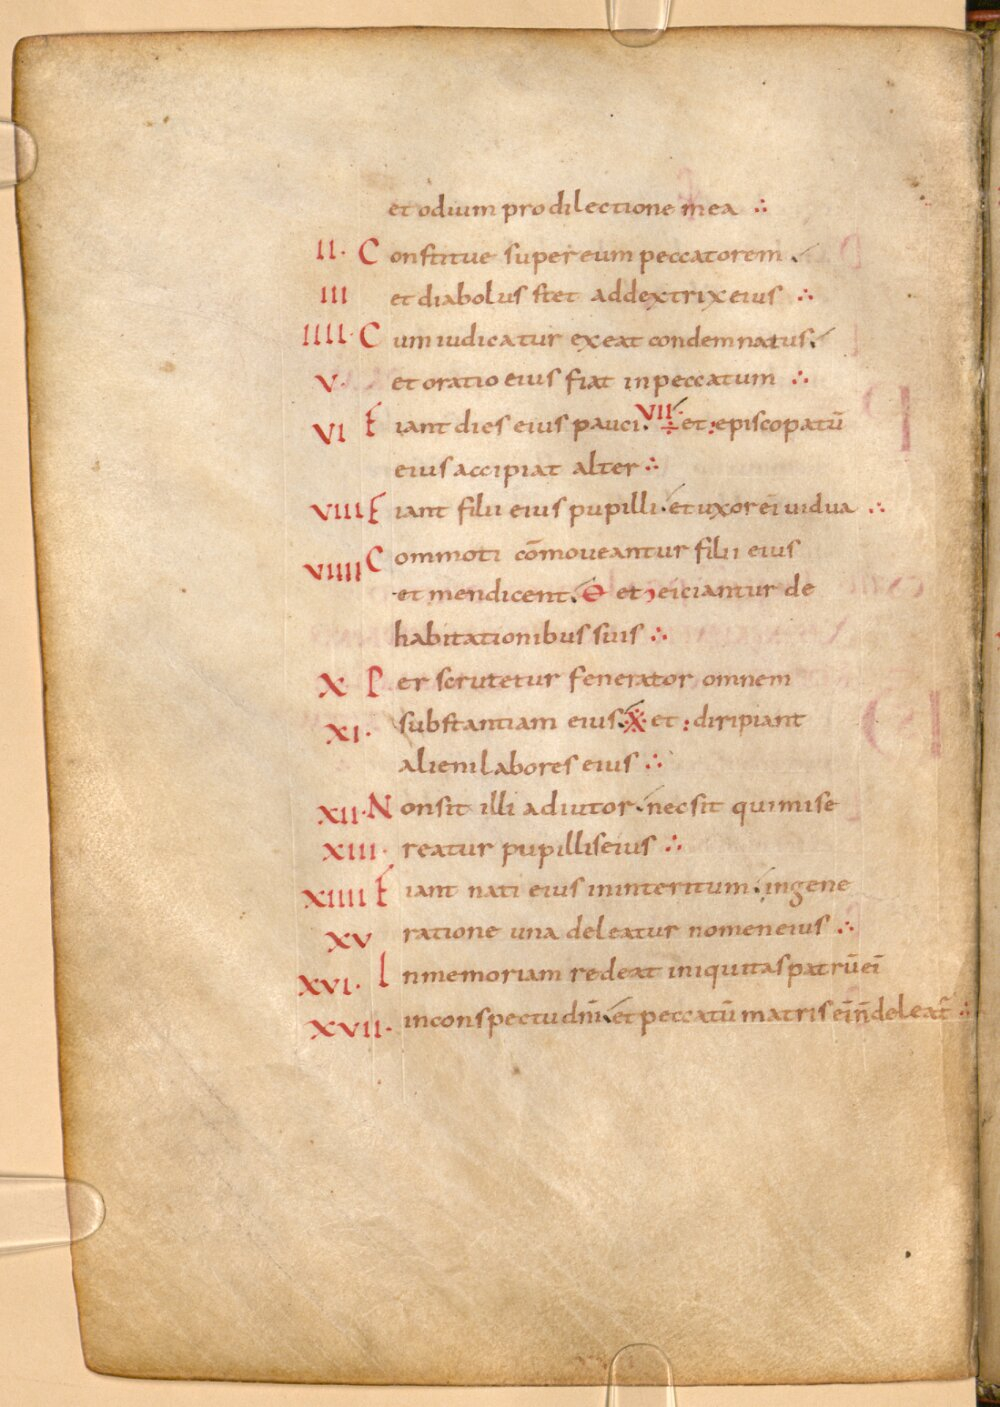 et odium pro dilectione mea ∴
II· Constitue super eum peccatorem.
III et diabolus stet addextrix eius ∴
IIII· Cum iudicatur exeat condemnatus.
V· et oratio eius fiat inpeccatum ∴
VI Fiant dies eius pauci. VII· ÷ et : episcopatū
eius accipiat alter ∴
VIII Fiant filii eius pupilli. et uxor eī uidua ∴
VIIII Commoti cōmoveantur filii eius
et mendicent. et eiciantur de
habitationibus suis ∴
X Per scrutetur fenerator omnem
XI· substantiam eius. et : diripiant
alieni labores eius ∴
XII· Non sit illi adiutor. nec sit qui mise
XIII· reatur pupillis eius ∴
XIIII Fiant nati eius ininteritum. in gene
XV ratione una deleatur nomen eius ∴
XVI· In memoriam redeat iniquitas patrū eī
XVII· in conspectu dnī. et peccatū matris eī n̄ deleat̄ ∴